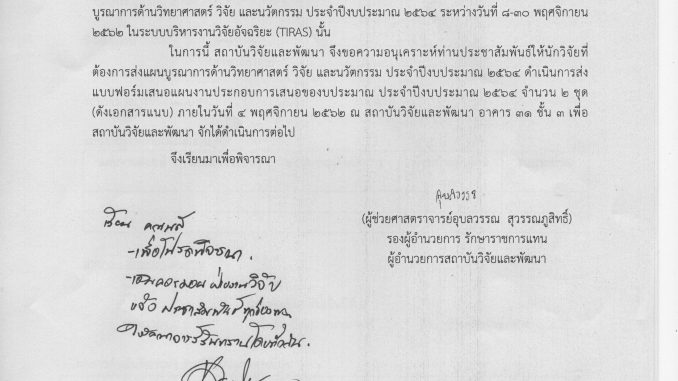 บูรณาการด้านวิทยาศาสตร์ วิจัย และนวัตกรรม ประจำปีงบประมาณ ๒๕๖๔ ระหว่างวันที่ ๘-๓๐ พฤศจิกายน
๒๕๖๒ ในระบบบริหารงานวิจัยอัจฉริยะ (TIRAS) นั้น
ในการนี้ สถาบันวิจัยและพัฒนา จึงขอความอนุเคราะห์ท่านประชาสัมพันธ์ให้นักวิจัยที่
ต้องการส่งแผนบูรณาการด้านวิทยาศาสตร์ วิจัย และนวัตกรรม ประจำปีงบประมาณ ๒๕๖๔ ดำเนินการส่ง
แบบฟอร์มเสนอแผนงานประกอบการเสนอของบประมาณ ประจำปีงบประมาณ ๒๕๖๔ จำนวน ๒ ชุด
(ดังเอกสารแนบ) ภายในวันที่ ๔ พฤศจิกายน ๒๕๖๒ ณ สถาบันวิจัยและพัฒนา อาคาร ๓๑ ชั้น ๓ เพื่อ
สถาบันวิจัยและพัฒนา จักได้ดำเนินการต่อไป
จึงเรียนมาเพื่อพิจารณา
อุบลวรรณ
(ผู้ช่วยศาสตราจารย์อุบลวรรณ สุวรรณภูสิทธิ์)
รองผู้อำนวยการ รักษาราชการแทน
ผู้อำนวยการสถาบันวิจัยและพัฒนา
เรียน คณบดี
-เพื่อโปรดพิจารณา.
-เห็นควรมอบ ฝ่ายงานวิจัย
แจ้ง ประชาสัมพันธ์